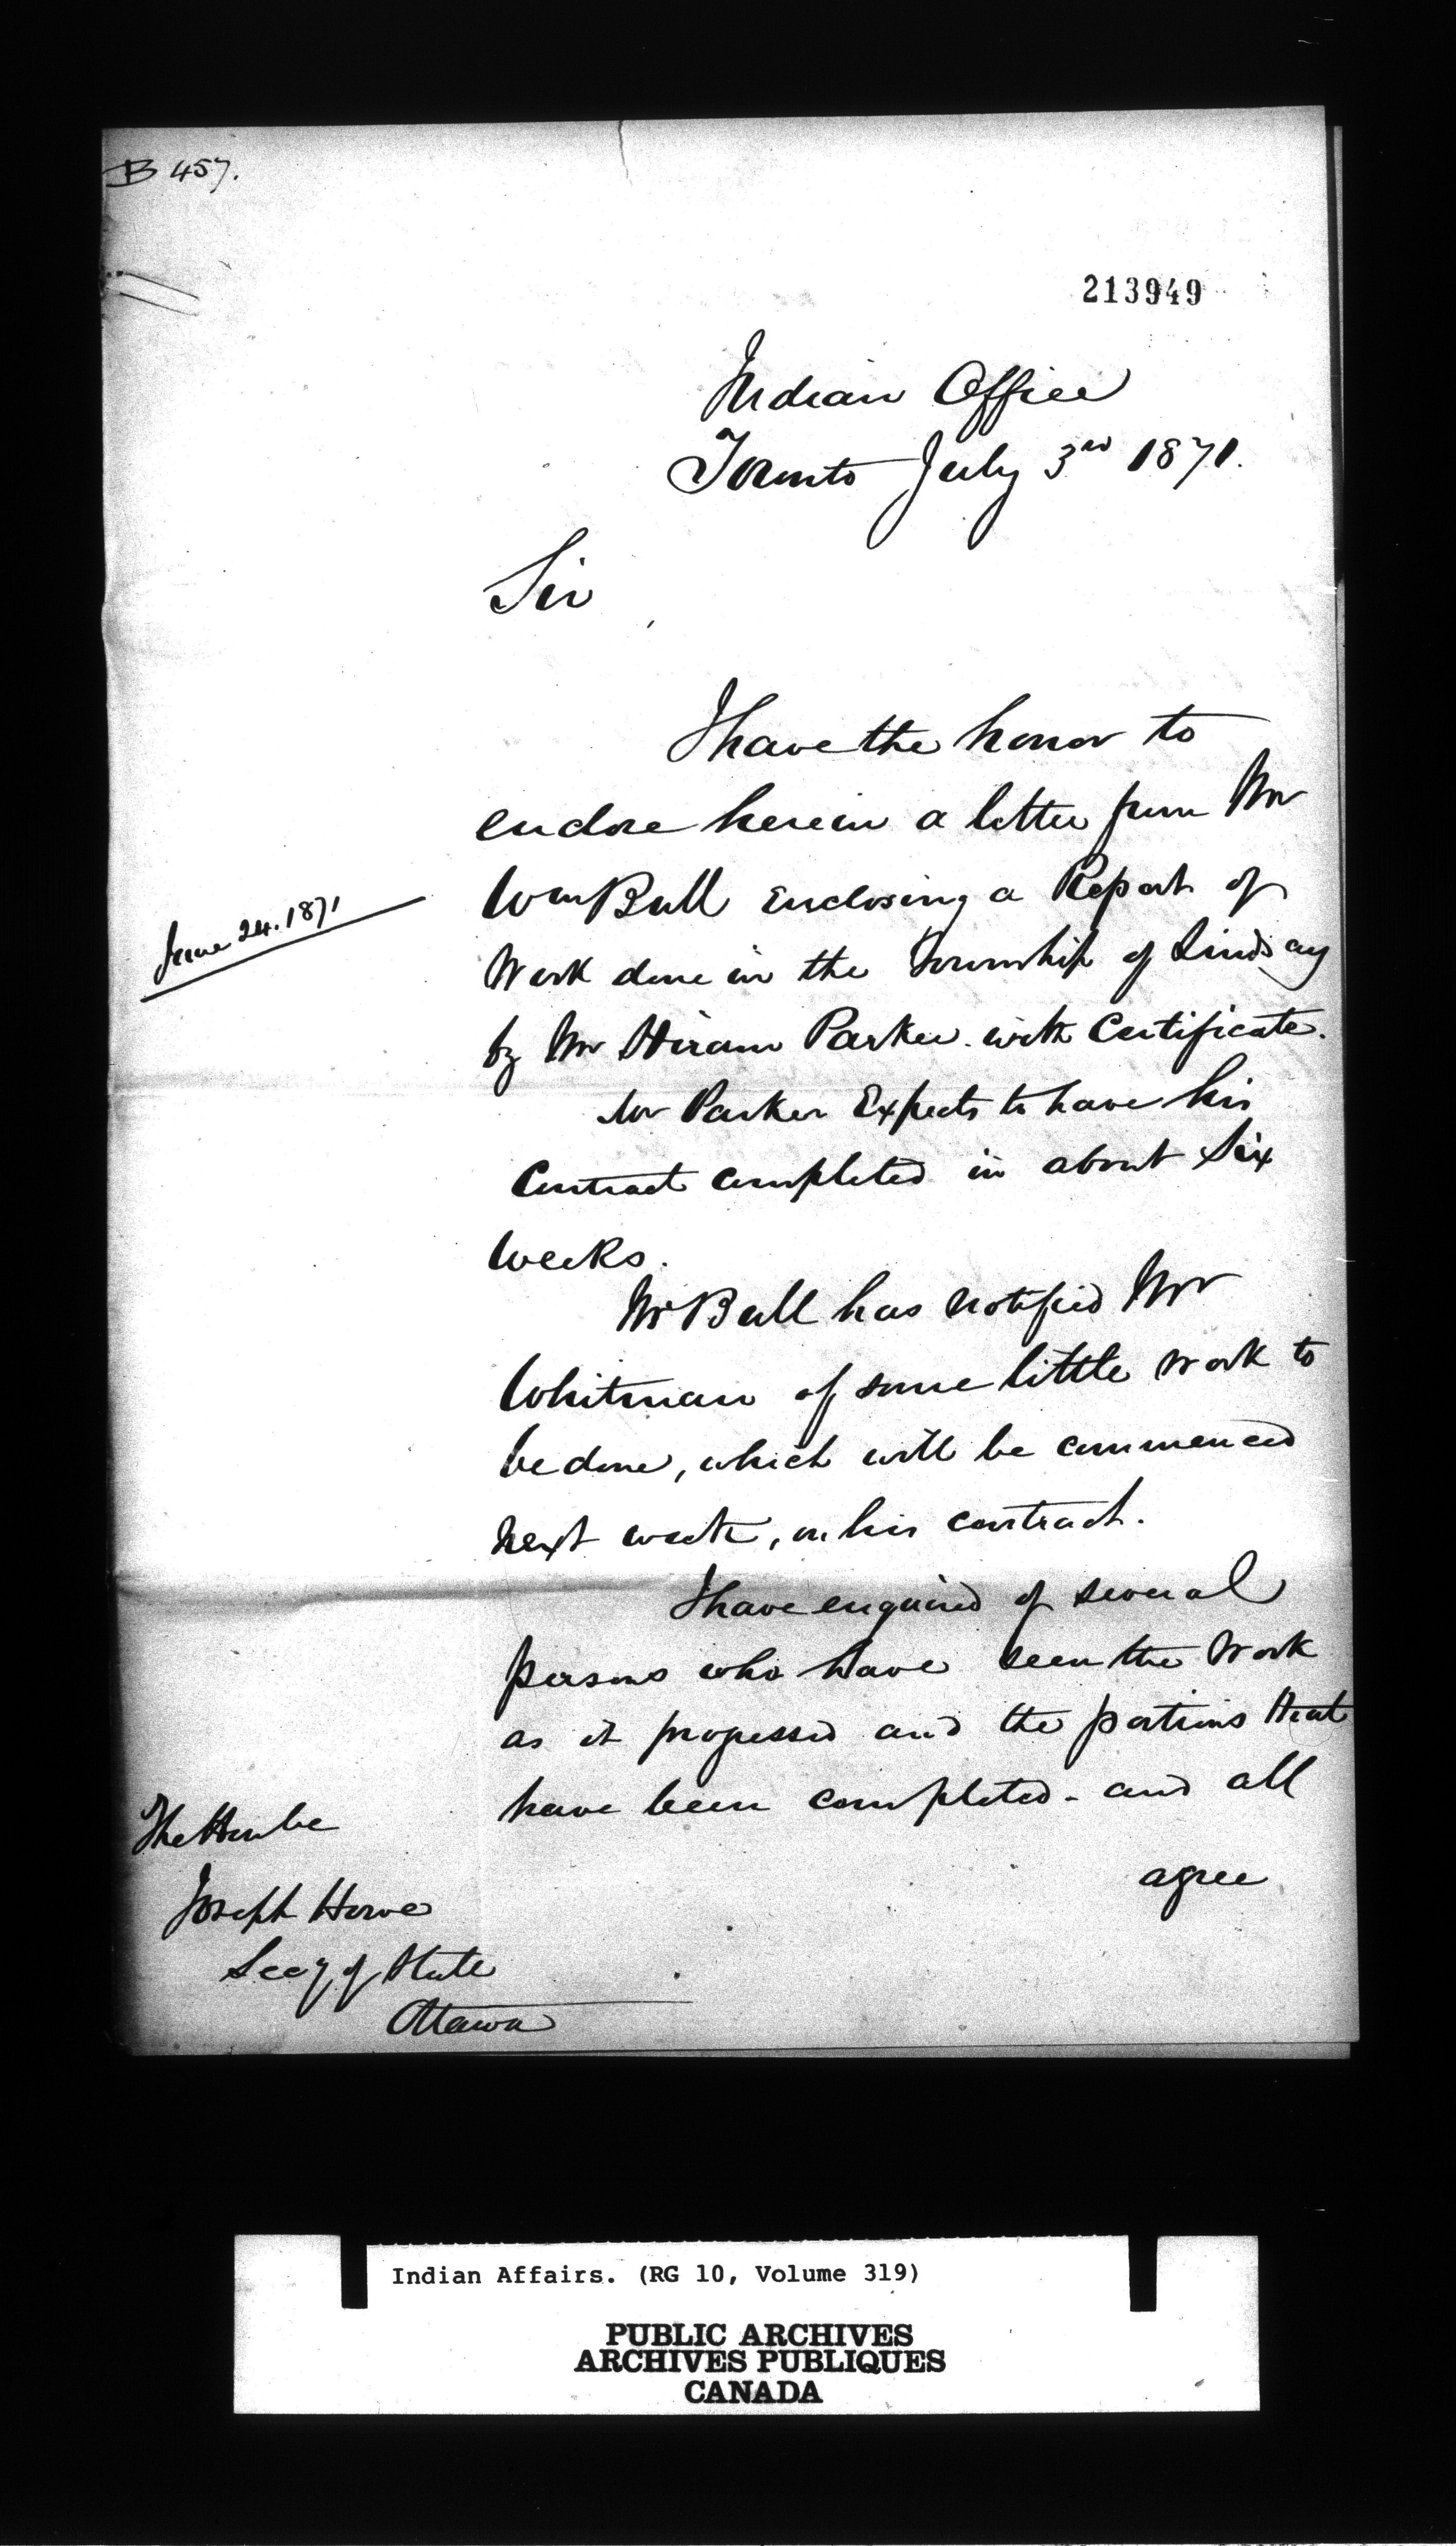 B 457.
213949
Indian Office
Toronto July 3rd 1871.
Sir
I have the honor to
enclose herein a letter from Mr
Wm Bull enclosing a Report of
June 24. 1871
Work done in the Township of Lindsay
by Mr Hiram Parker with Certificate.
Mr Parker Expects to have his
Contract completed in about Six
weeks.
Mr Bull has notified Mr
Whitman of some little work to
be done, which will be commenced
next week, on his contract.
I have enquired of several
persons who have seen the work
as it progressed and the portions that
have been completed - and all
agree
The Honble
Joseph Howe
Secy of State
Ottawa
Indian Affairs. (RG 10, Volume 319)
PUBLIC ARCHIVES
ARCHIVES PUBLIQUES
CANADA